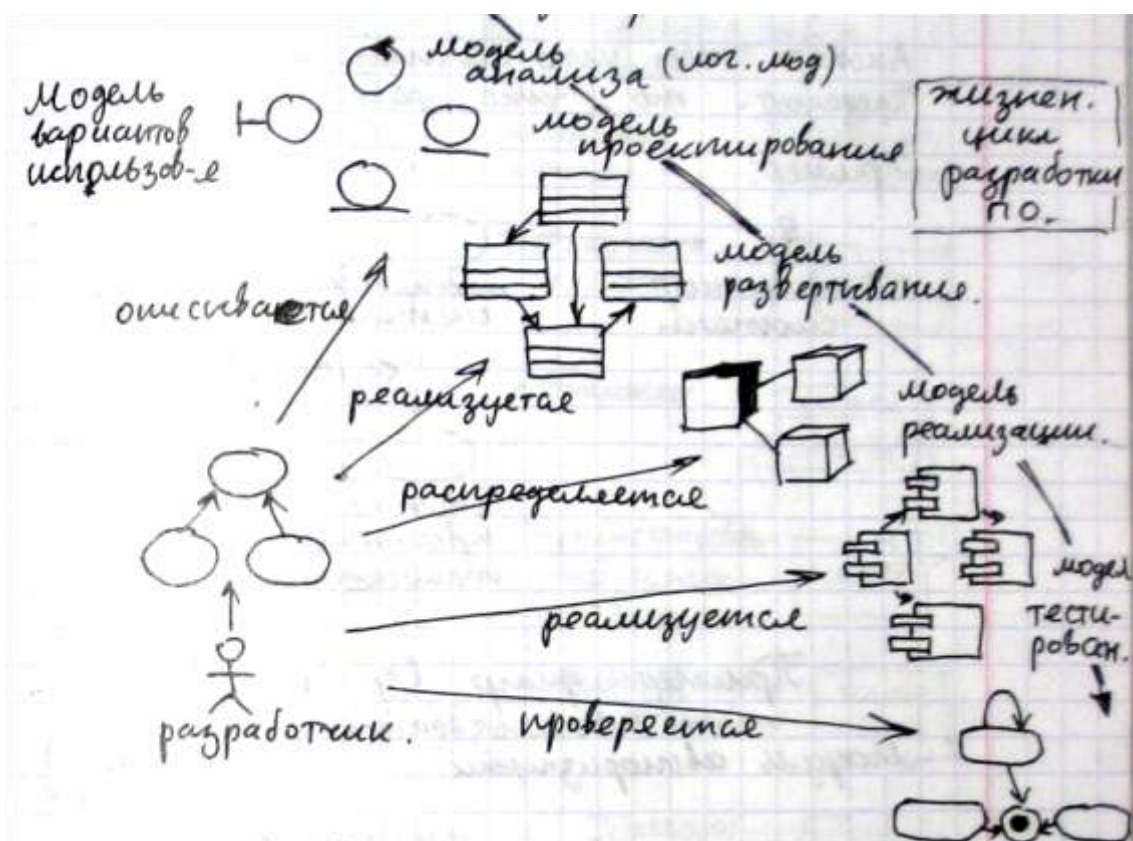 модель
анализа (лог. мод)
Модель
вариантов
использов-е
модель
проектирования
жизнен.
цикл
разработки
ПО.
модель
развертывания.
описывается
реализуется
модель
реализации.
распределяется
модел
тести-
рован.
реализуется
разработчик.
проверяется